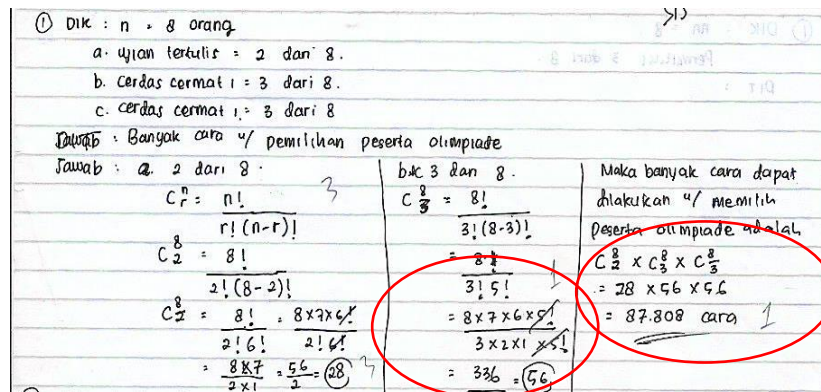 ① Dik : n = 8 orang
a. ujian tertulis = 2 dari 8.
b. cerdas cermat 1 = 3 dari 8.
c. cerdas cermat 1 = 3 dari 8
Jawab : Banyak cara u/ pemilihan peserta olimpiade
Jawab : a. 2 dari 8.
C^n_r = n! / r! (n-r)!
3
C^8_2 = 8! / 2! (8-2)!
C^8_2 = 8! / 2! 6! = 8x7x6! / 2! 6!
= 8x7 / 2x1 = 56 / 2 = 28
3
b&c 3 dari 8.
C^8_3 = 8! / 3! (8-3)!
= 8! / 3! 5!
1
= 8x7x6x5! / 3x2x1 x5!
= 336 = 56
Maka banyak cara dapat
dilakukan u/ memilih
peserta olimpiade adalah
C^8_2 x C^8_3 x C^8_3
= 28 x 56 x 56
= 87.808 cara
1